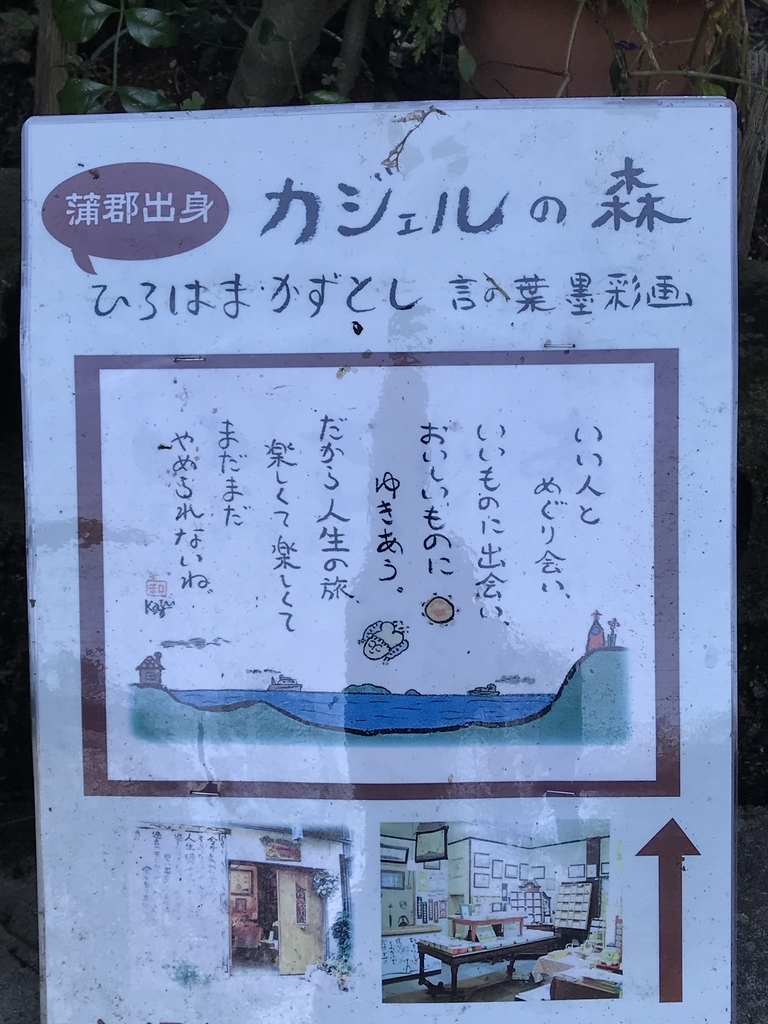 蒲郡出身
カジェルの森
ひろはまかずとし 言の葉墨彩画
いい人と
めぐり会い、
いいものに出会い、
おいしいものに
ゆきあう。
だから人生の旅、
楽しくて楽しくて
まだまだ
やめられないね。
和